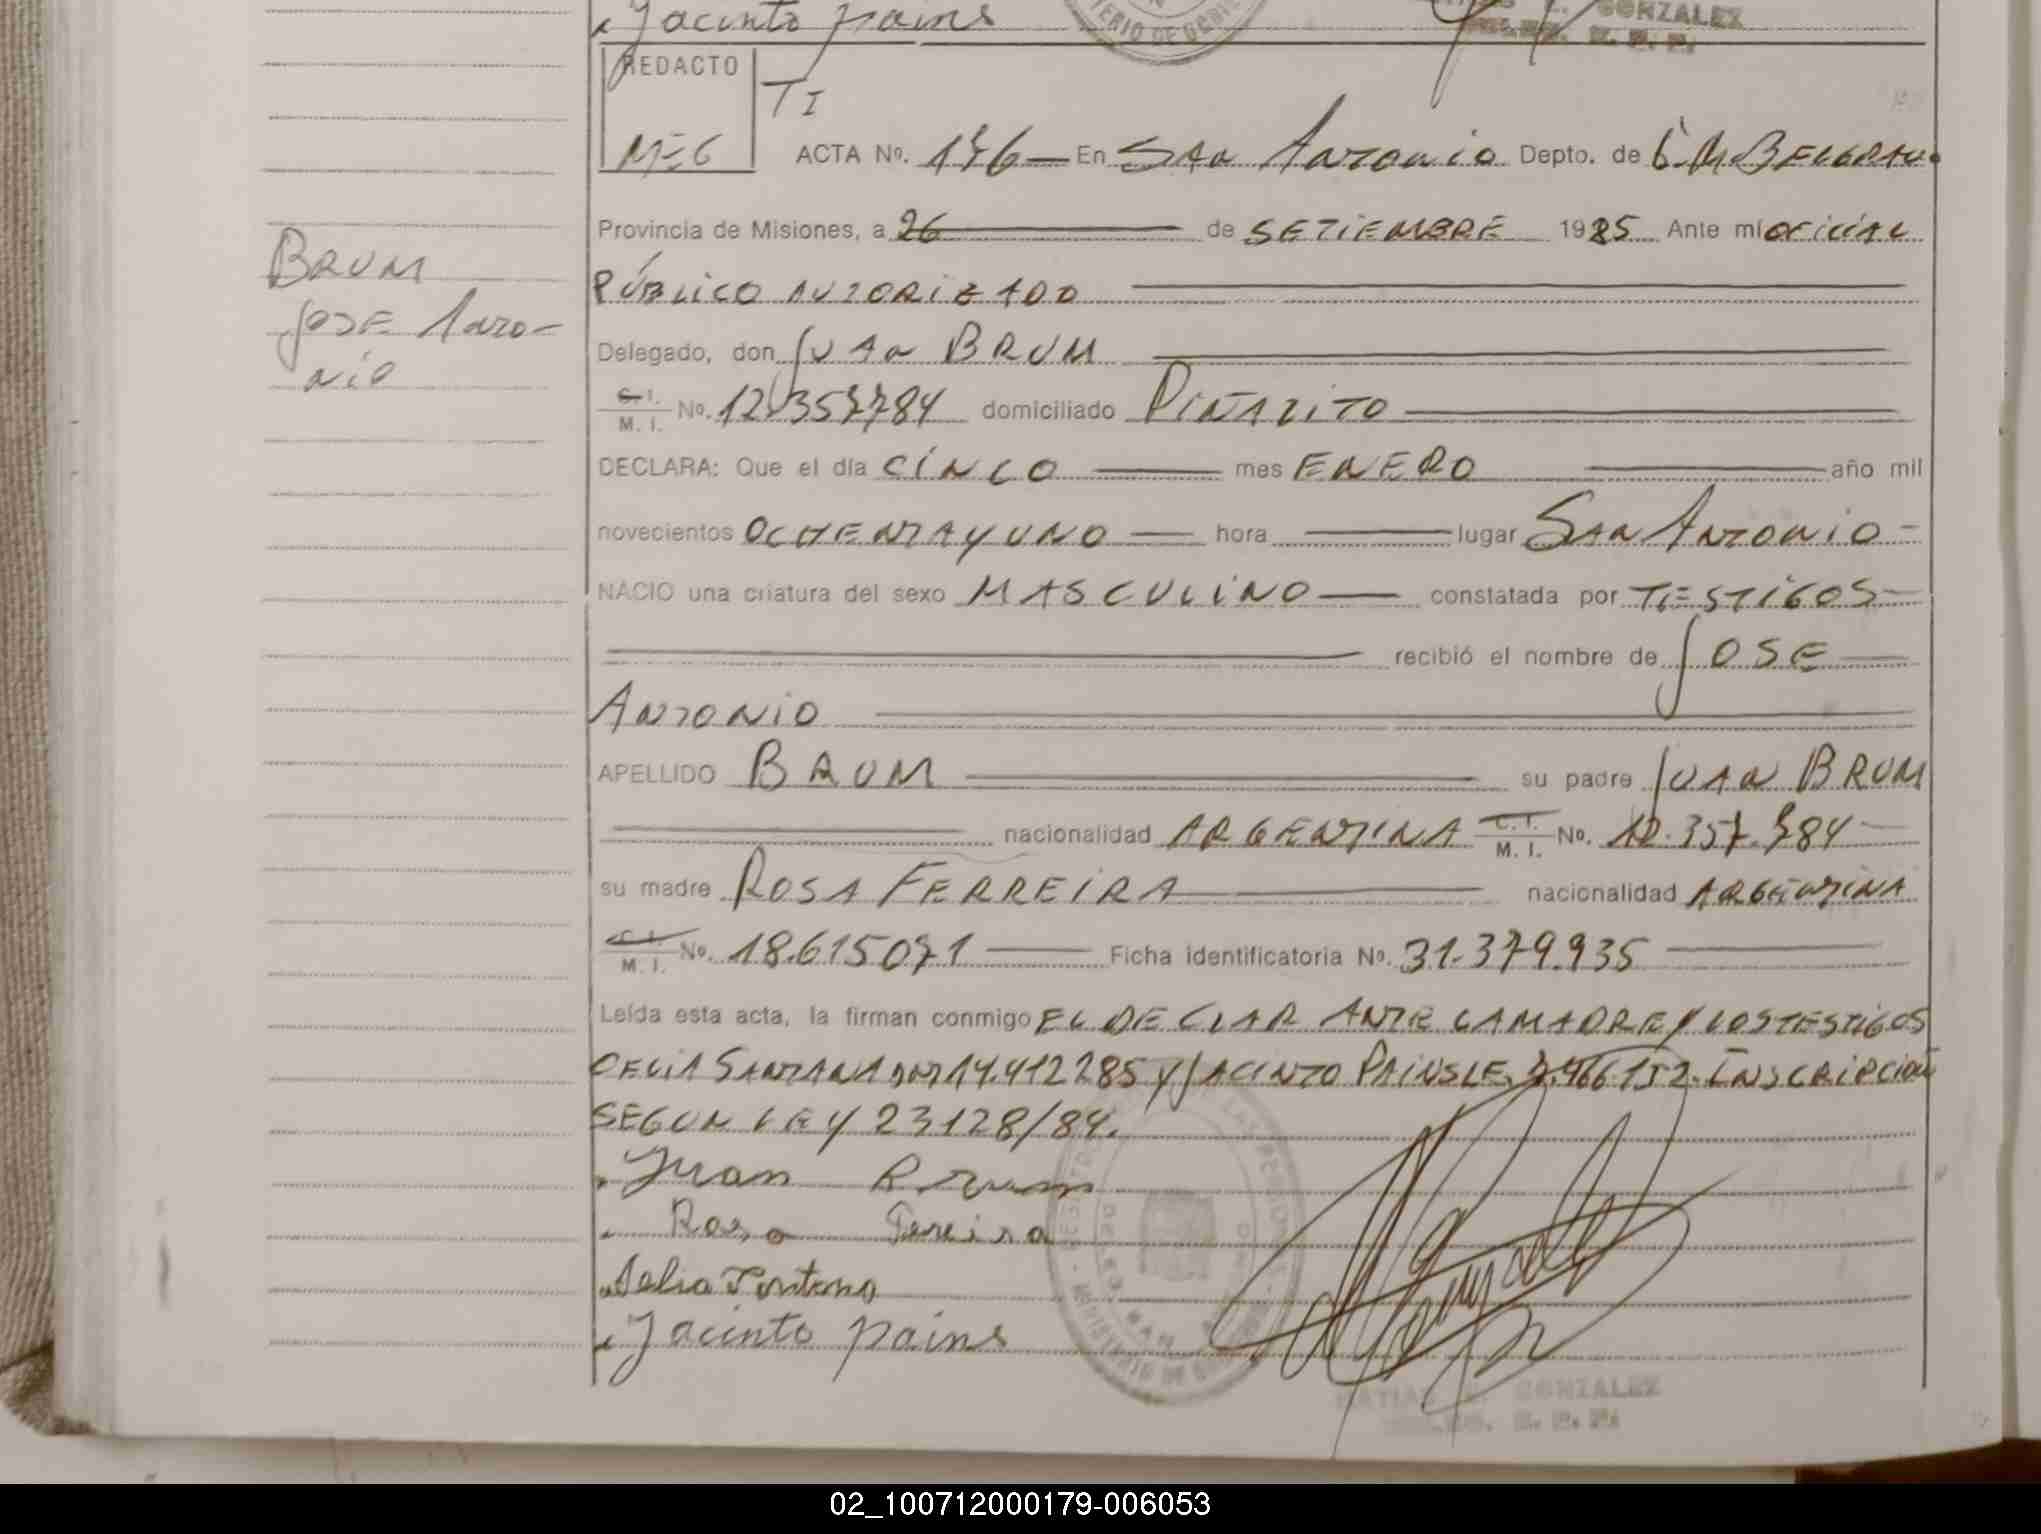 Jacinto pains
TERIO DE GOBIE
GONZALEZ
REDACTO
TI
ACTA Nº. 176 En San Antonio Depto. de G. M. BELGRANO
Provincia de Misiones, a 26 de SETIEMBRE 1985 Ante mí OFICIAL
PÚBLICO AUTORIZADO
BRUM
JOSE Anto-
nio
Delegado, don JUAN BRUM
C. I.
M. I. No. 12.357784 domiciliado PIÑALITO
DECLARA: Que el día CINCO mes ENERO año mil
novecientos OCHENTA Y UNO hora lugar SAN ANTONIO
NACIO una criatura del sexo MASCULINO constatada por TESTIGOS
recibió el nombre de JOSE
ANTONIO
APELLIDO BRUM su padre JUAN BRUM
nacionalidad ARGENTINA C. I. M. I. No. 12.357.784
su madre ROSA FERREIRA nacionalidad ARGENTINA
C. I. M. I. No. 18.615071 Ficha identificatoria Nº. 31.379.935
Leída esta acta, la firman conmigo EL DECLARANTE LA MADRE Y LOS TESTIGOS
SANTANA DNI 14.412285 Y JACINTO PAINS LE. 7.466152. INSCRIPCION
SEGUN LEY 23128/84.
Juan Brum
Rosa Fereira
Jacinto pains
GONZALEZ
02_100712000179-006053